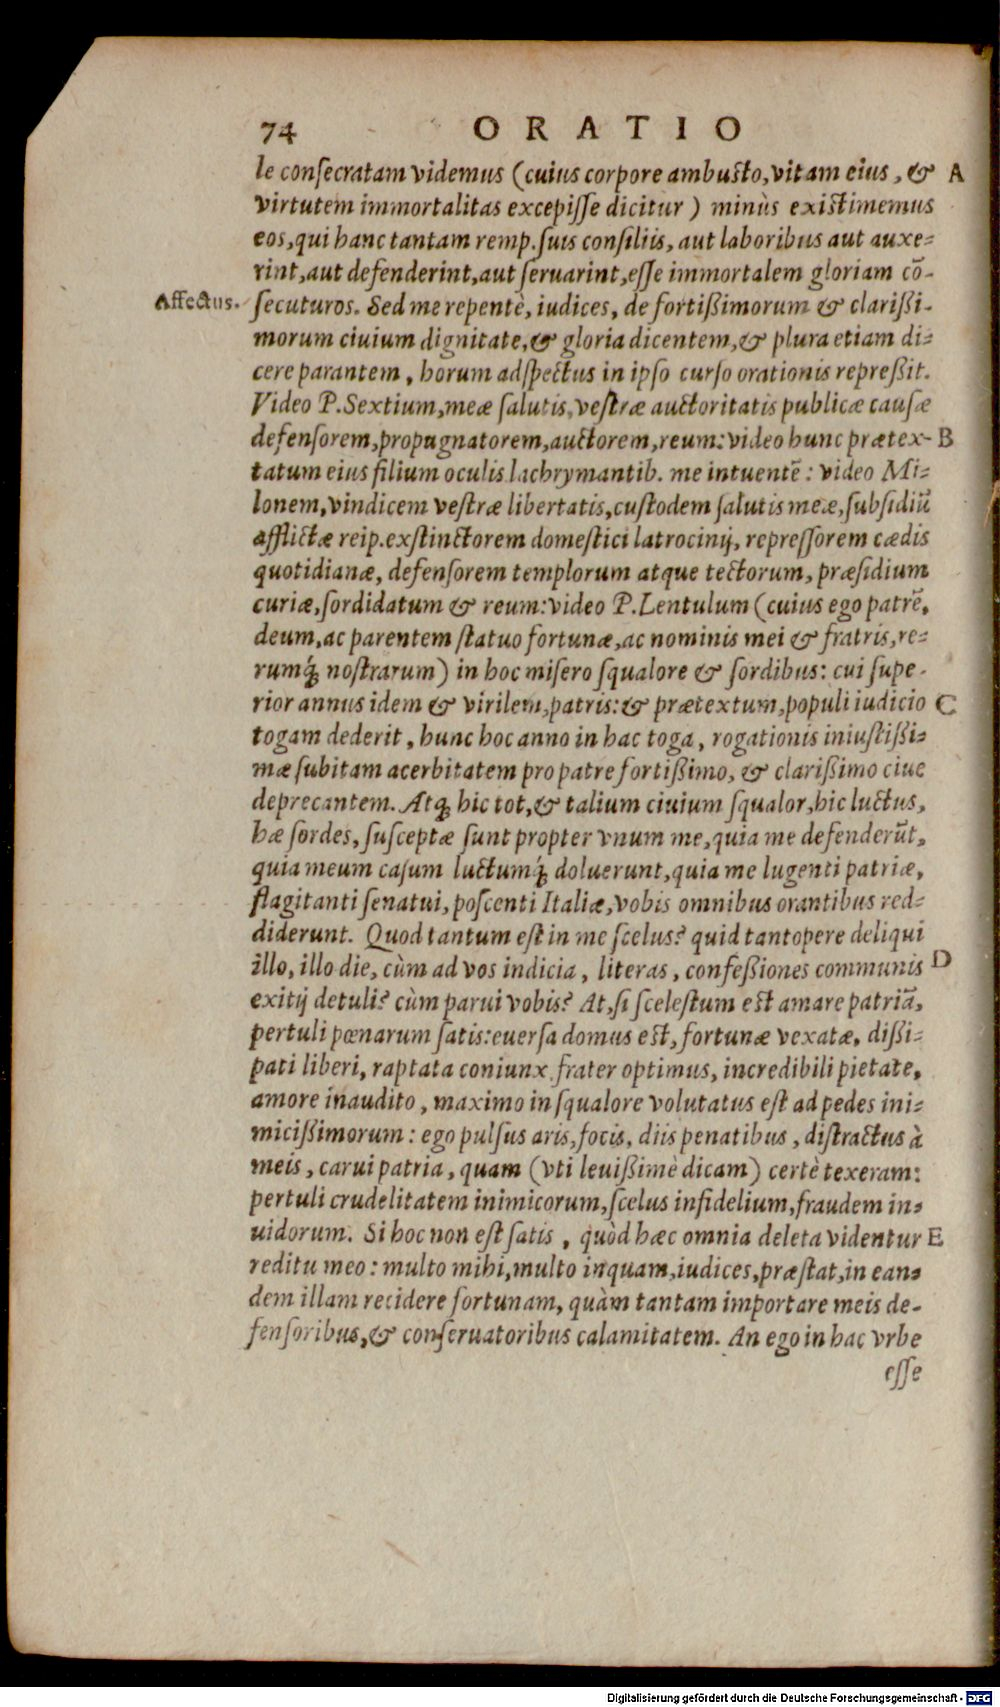 74 ORATIO
le consecratam videmus (cuius corpore ambusto, vitam eius, & A
virtutem immortalitas excepisse dicitur) minùs existimemus
eos, qui hanc tantam remp. suis consiliis, aut laboribus aut auxe-
rint, aut defenderint, aut seruarint, esse immortalem gloriam cō-
Affectus. secuturos. Sed me repentè, iudices, de fortißimorum & clarißi-
morum ciuium dignitate, & gloria dicentem, & plura etiam di-
cere parantem, horum adspectus in ipso curso orationis repreßit.
Video P. Sextium, meæ salutis, vestræ auctoritatis publicæ causæ
defensorem, propugnatorem, auctorem, reum: video hunc prætex- B
tatum eius filium oculis lachrymantib. me intuentē: video Mi-
lonem, vindicem vestræ libertatis, custodem salutis meæ, subsidiū
afflictæ reip. exstinctorem domestici latrocinij, repressorem cædis
quotidianæ, defensorem templorum atque tectorum, præsidium
curiæ, sordidatum & reum: video P. Lentulum (cuius ego patrē,
deum, ac parentem statuo fortunæ, ac nominis mei & fratris, re-
rumq́; nostrarum) in hoc misero squalore & sordibus: cui supe-
rior annus idem & virilem, patris: & prætextum, populi iudicio C
togam dederit, hunc hoc anno in hac toga, rogationis iniustißi-
mæ subitam acerbitatem pro patre fortißimo, & clarißimo ciue
deprecantem. Atq; hic tot, & talium ciuium squalor, hic luctus,
hæ sordes, susceptæ sunt propter vnum me, quia me defenderūt,
quia meum casum luctumq́; doluerunt, quia me lugenti patriæ,
flagitanti senatui, poscenti Italiæ, vobis omnibus orantibus red-
diderunt. Quod tantum est in me scelus? quid tantopere deliqui
illo, illo die, cùm ad vos indicia, literas, confeßiones communis D
exitij detuli? cùm parui vobis? At, si scelestum est amare patriā,
pertuli pœnarum satis: euersa domus est, fortunæ vexatæ, dißi-
pati liberi, raptata coniunx frater optimus, incredibili pietate,
amore inaudito, maximo in squalore volutatus est ad pedes ini-
micißimorum: ego pulsus aris, focis, diis penatibus, distractus à
meis, carui patria, quam (vti leuißimè dicam) certè texeram:
pertuli crudelitatem inimicorum, scelus infidelium, fraudem in-
uidorum. Si hoc non est satis, quòd hæc omnia deleta videntur E
reditu meo: multo mihi, multo inquam, iudices, præstat, in ean-
dem illam recidere fortunam, quàm tantam importare meis de-
fensoribus, & conseruatoribus calamitatem. An ego in hac vrbe
esse
Digitalisierung gefördert durch die Deutsche Forschungsgemeinschaft - DFG